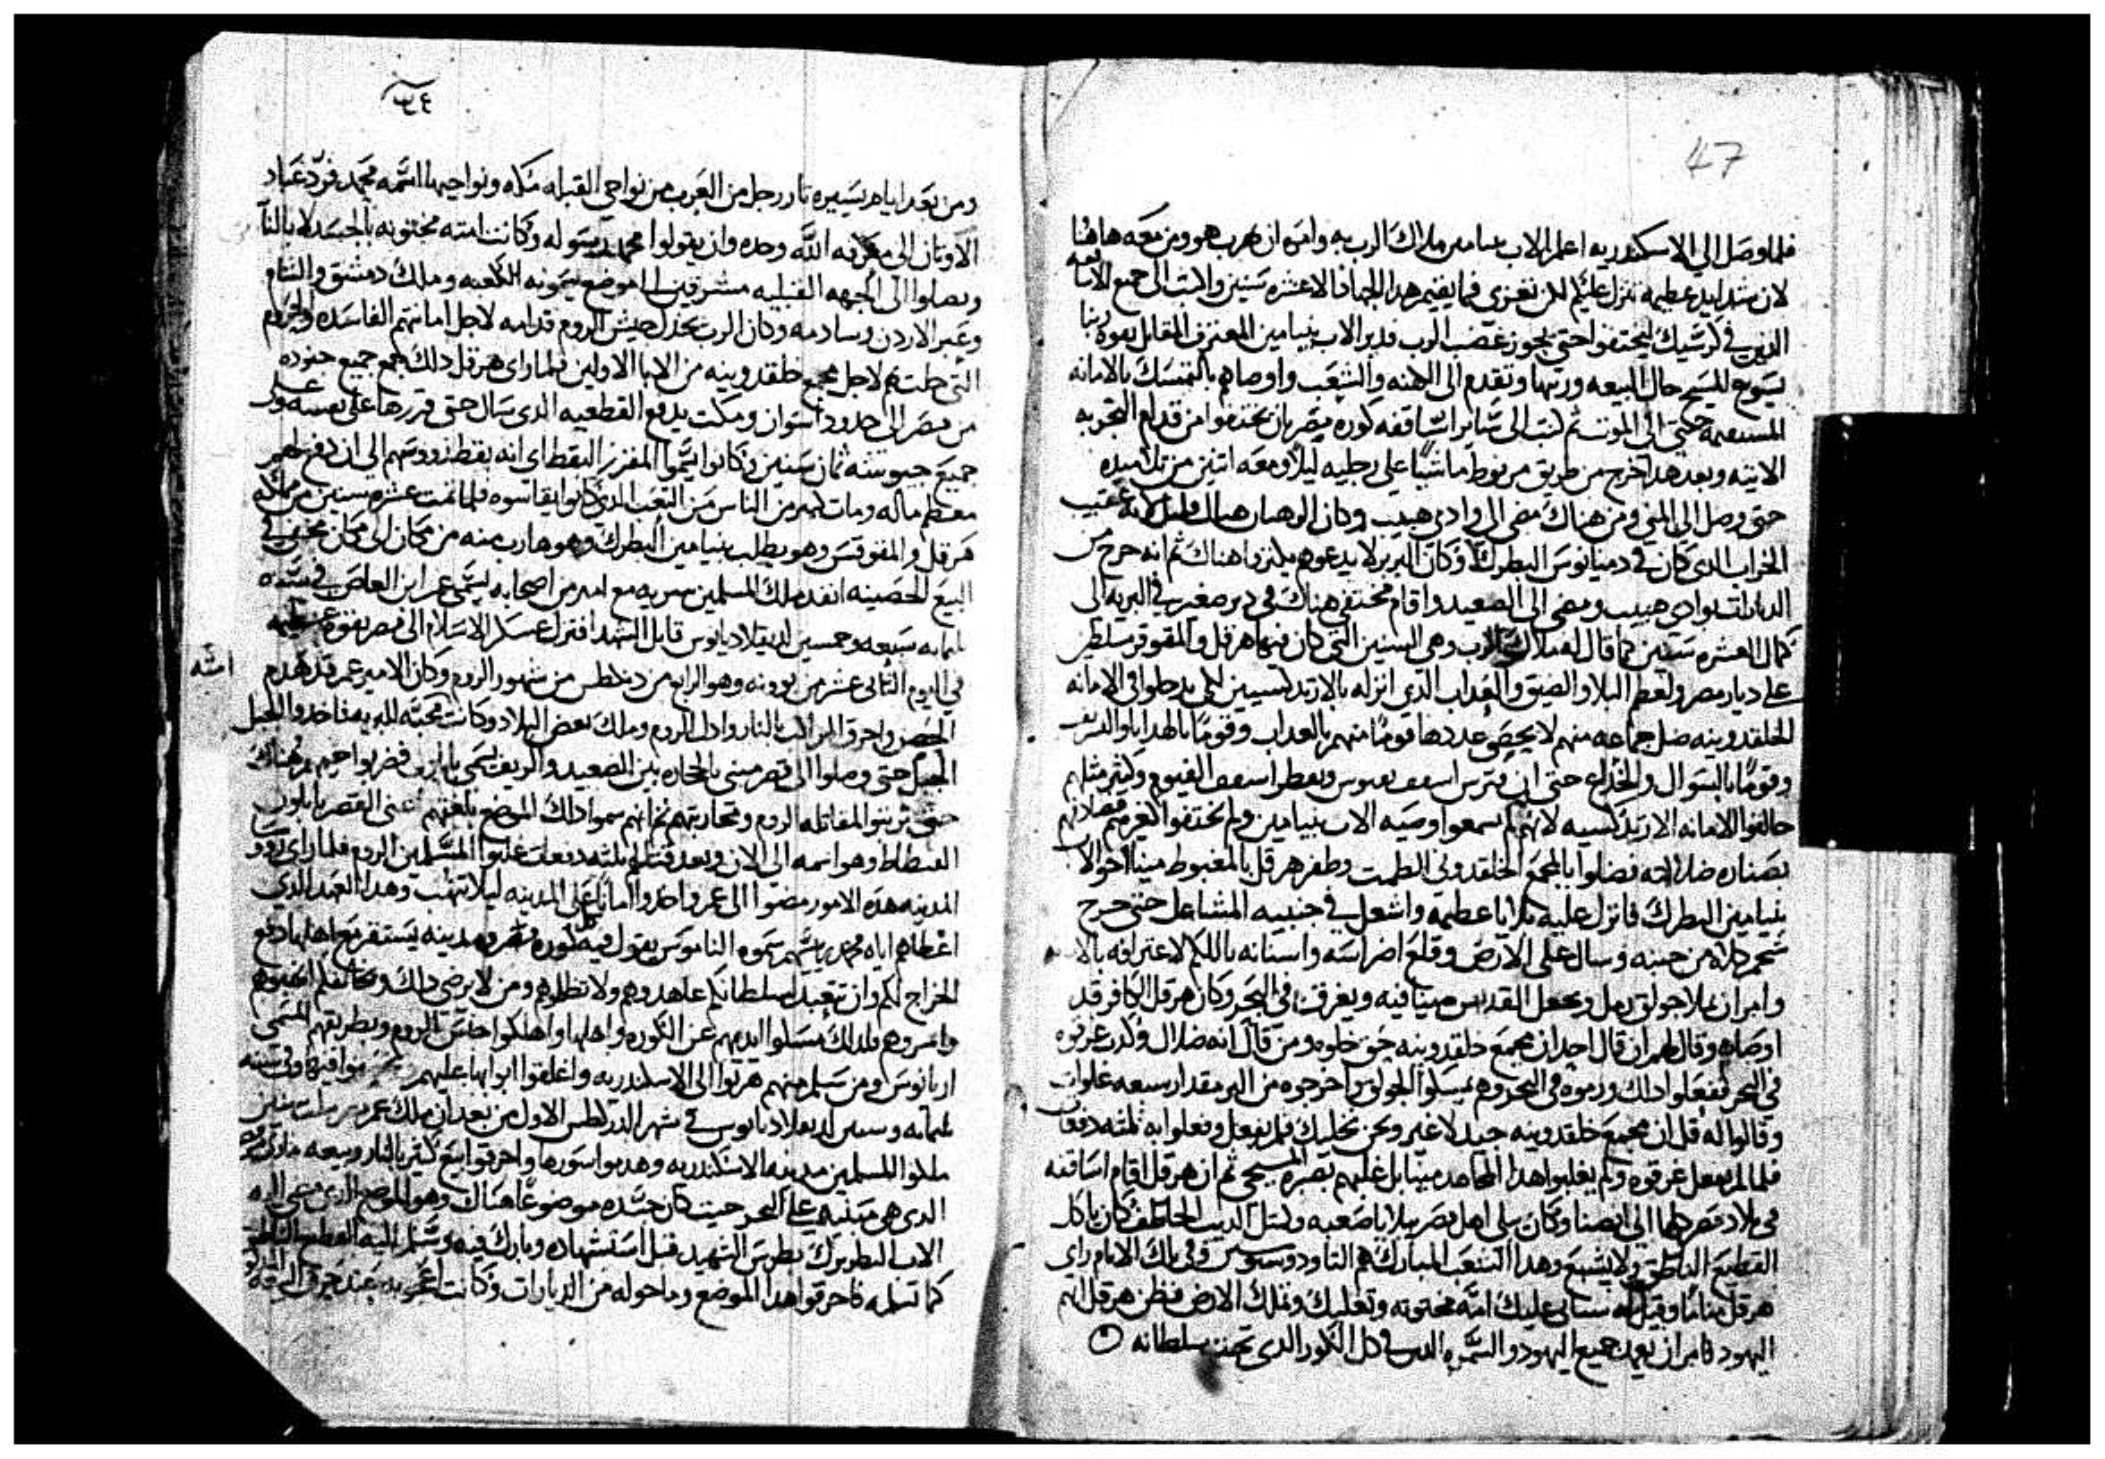 47
فلما وصل الي الاسكندريه اعلم الاب بنيامين ملاك الرب به وامره ان يهرب هو ومن معه هاهنا
لان شدايد عظيمه تنزل عليكم لكن تعزى فما يقيم هذا الجهاد الا عشره سنين واكتب الى جميع الاساقفه
الذين في كرسيك ليختفوا حتى يجوز غضب الرب فدبر الاب بنيامين المعترف المقاتل بقوه ربنا
يسوع المسيح حال البيعه ورتبها وتقدم الى الكهنه والشعب واوصاهم بالتمسك بالامانه
المستقيمه حتى الى الموت ثم كتب الى ساير اساقفه كوره مصر بان يختفوا من قدام التجربه
الاتيه وبعد هذا خرج من طريق مريوط ماشيا على رجليه ليلا ومعه اتنين من تلاميده
حتى وصل الي المني ومن هناك مضى الى وادي هبيب وكان الرهبان هناك قليل عقيب
الخراب الدى كان في دميانوس البطرك وكان البربر لا يدعوهم يكتروا هناك ثم انه خرج من
الديارات بوادي هبيب ومضى الى الصعيد واقام مختفى هناك في دير صغير في البريه الى
كمال العشره سنين كما قال له ملاك الرب وهى السنين التى كان فيها هرقل والمقوقز متسلطين
على ديار مصر ولعظم البلا والضيق والعداب الدى انزله بالارتدكسيين لكى يدخلوا فى الامانه
الخلقدونيه ضل جماعه منهم لا يحصى عددها قوما منهم بالعداب وقوما بالهدايا والتشريف
وقوما بالسوال والخداع حتى ان قيرس اسقف نقيوس وبقطر اسقف الفيوم وكثير مثلهم
خالفوا الامانه الارتدكسيه لانهم لم يسمعوا وصيه الاب بنيامين ولم يختفوا كغيرهم فصادهم
بصناره ضلالته فضلوا بالمجمع الخلقدونى الطمت وظفر هرقل بالمغبوط مينا اخو الاب
بنيامين البطرك فانزل عليه بلايا عظيمه واشعل في جنبيه المشاعل حتى خرج
شحم كلاه من جنبه وسال على الارض وقلع اضراسه واسنانه باللكم لاعترافه بالامانه
وامر ان يملا جولق رمل ويجعل القديس مينا فيه ويغرق فى البحر وكان هرقل الكافر قد
اوصاهم وقال لهم ان قال احد ان مجمع خلقدونيه حق خلوه ومن قال انه ضلال وكدب غرقوه
في البحر ففعلوا دلك ورموه في البحر وهم يمسكوا الجولق واخرجوه من البر مقدار سبعه غلوات
وقالوا له قل ان مجمع خلقدونيه جيد لا غير ونحن نخليك فلم يفعل وفعلوا به ثلثه دفعات
فلما لم يفعل غرقوه ولم يغلبوا هذا المجاهد مينا بل غلبهم بصبره المسيحى ثم ان هرقل اقام اساقفه
في بلاد مصر كلها الى انصنا وكان يبلى اهل مصر ببلايا صعبه وكمثل الديب الخاطف كان ياكل
القطيع الناطق ولا يشبع وهدا الشعب المبارك هم التاودوسيوس وفى تلك الايام راى
هرقل مناما وقيل له ستاتى عليك امه مختونه وتغلبك وتملك الارض فظن هرقل انهم
اليهود فامر ان يعمد جميع اليهود والسمره الدين في كل الكور الدى تحت سلطانه
ومن بعد ايام يسيره ثار رجل من العرب من نواحي القبله مكه ونواحيها اسمه محمد فرد عباد
الاوتان الى معرفه الله وحده وان يقولوا محمد رسوله وكانت امته مختونه بالجسد لا بالناموس
ويصلوا الى الجهه القبليه مشرقين الى موضع يسمونه الكعبه وملك دمشق والشام
وعبر الاردن وسادمه وكان الرب يخدل جيش الروم قدامه لاجل امانتهم الفاسده والحروم
التى حلت بهم لاجل مجمع خلقدونيه من الابا الاولين فلما راى هرقل دلك جمع جميع جنوده
من مصر الى حدود اسوان ومكث يدفع القطعيه الدى سال حتى قررها على نفسه وعلى
جميع جيوشه ثمان سنين وكانوا يسموا المقرر البقط اي انه بقط رووسهم الى ان دفع لهم
معظم ماله ومات كثير من الناس من التعب الدى كانوا يقاسوه فلما تمت عشره سنين من مملكه
هرقل والمقوقس وهو يطلب بنيامين البطرك وهو هارب منه من مكان الى مكان مختفى في
البيع الحصينه انفد ملك المسلمين سريه مع امير من اصحابه يسمى عمر ابن العاص في سنه
ثلتمايه سبعه وخمسين لديقلاديانوس قاتل الشهدا فنزل عسكر الاسلام الى مصر بقوه عظيمه
في اليوم الثانى عشر من بوونه وهو الرابع من دكطس من شهور الروم وكان الامير عمر قد هدم
الحصن واحرق المراكب بالنار وادل الروم وملك بعض البلاد وكانت محبته للبريه فاخدوا الجبل
حتى وصلوا الى قصر مبنى بالحجاره بين الصعيد والريف يسمى بابلون فضربوا خيمهم هناك
حتى ترتبوا لمقاتله الروم ومحاربتهم ثم انهم سموا دلك الموضع بلغتهم اعنى القصر بابلون
الفسطاط وهو اسمه الى الان وبعد قتالهم ثلثه دفعات غلبوا المسلمين الروم فلما راى روسا
المدينه هده الامور مضوا الى عمر واخدوا امانا على المدينه ليلا تنهب وهدا العهد الدى
اعطاهم اياه محمد رييسهم سموه الناموس يقول فيه كوره مصر ومدينه يستقر مع اهلها دفع
الخراج لكم وان تتعبد لسلطانكم عاهدوهم ولا تظلموهم ومن لا يرضى دلك ويخالفكم انهبوهم
واسروهم فلدلك مسكوا ايديهم عن الكوره واهلها واهلكوا جنس الروم وبطريقهم المسمى
اريانوس ومن سلم منهم هربوا الى الاسكندريه واغلقوا ابوابها عليهم وتحصنوا فيها وفى سنه
ثلتمايه وستين لديقلاديانوس في شهر الدكطس الاول من بعد ان ملك عمر مصر بثلث سنين
ملكوا المسلمين مدينه الاسكندريه وهدموا سورها واحرقوا بيع كثير بالنار وبيعه مارى مرقس
الدى هى مبنيه على البحر حيث كان جسده موضوعا هناك وهو الموضع الدى مضى اليه
الاب البطريرك بطرس الشهيد قبل استشهاده وبارك فيه وسلم اليه القطيع الناطق
كما تسلمه فاحرقوا هدا الموضع وما حوله من الديارات وكانت اعجوبه عند حريق البيعه المدكوره